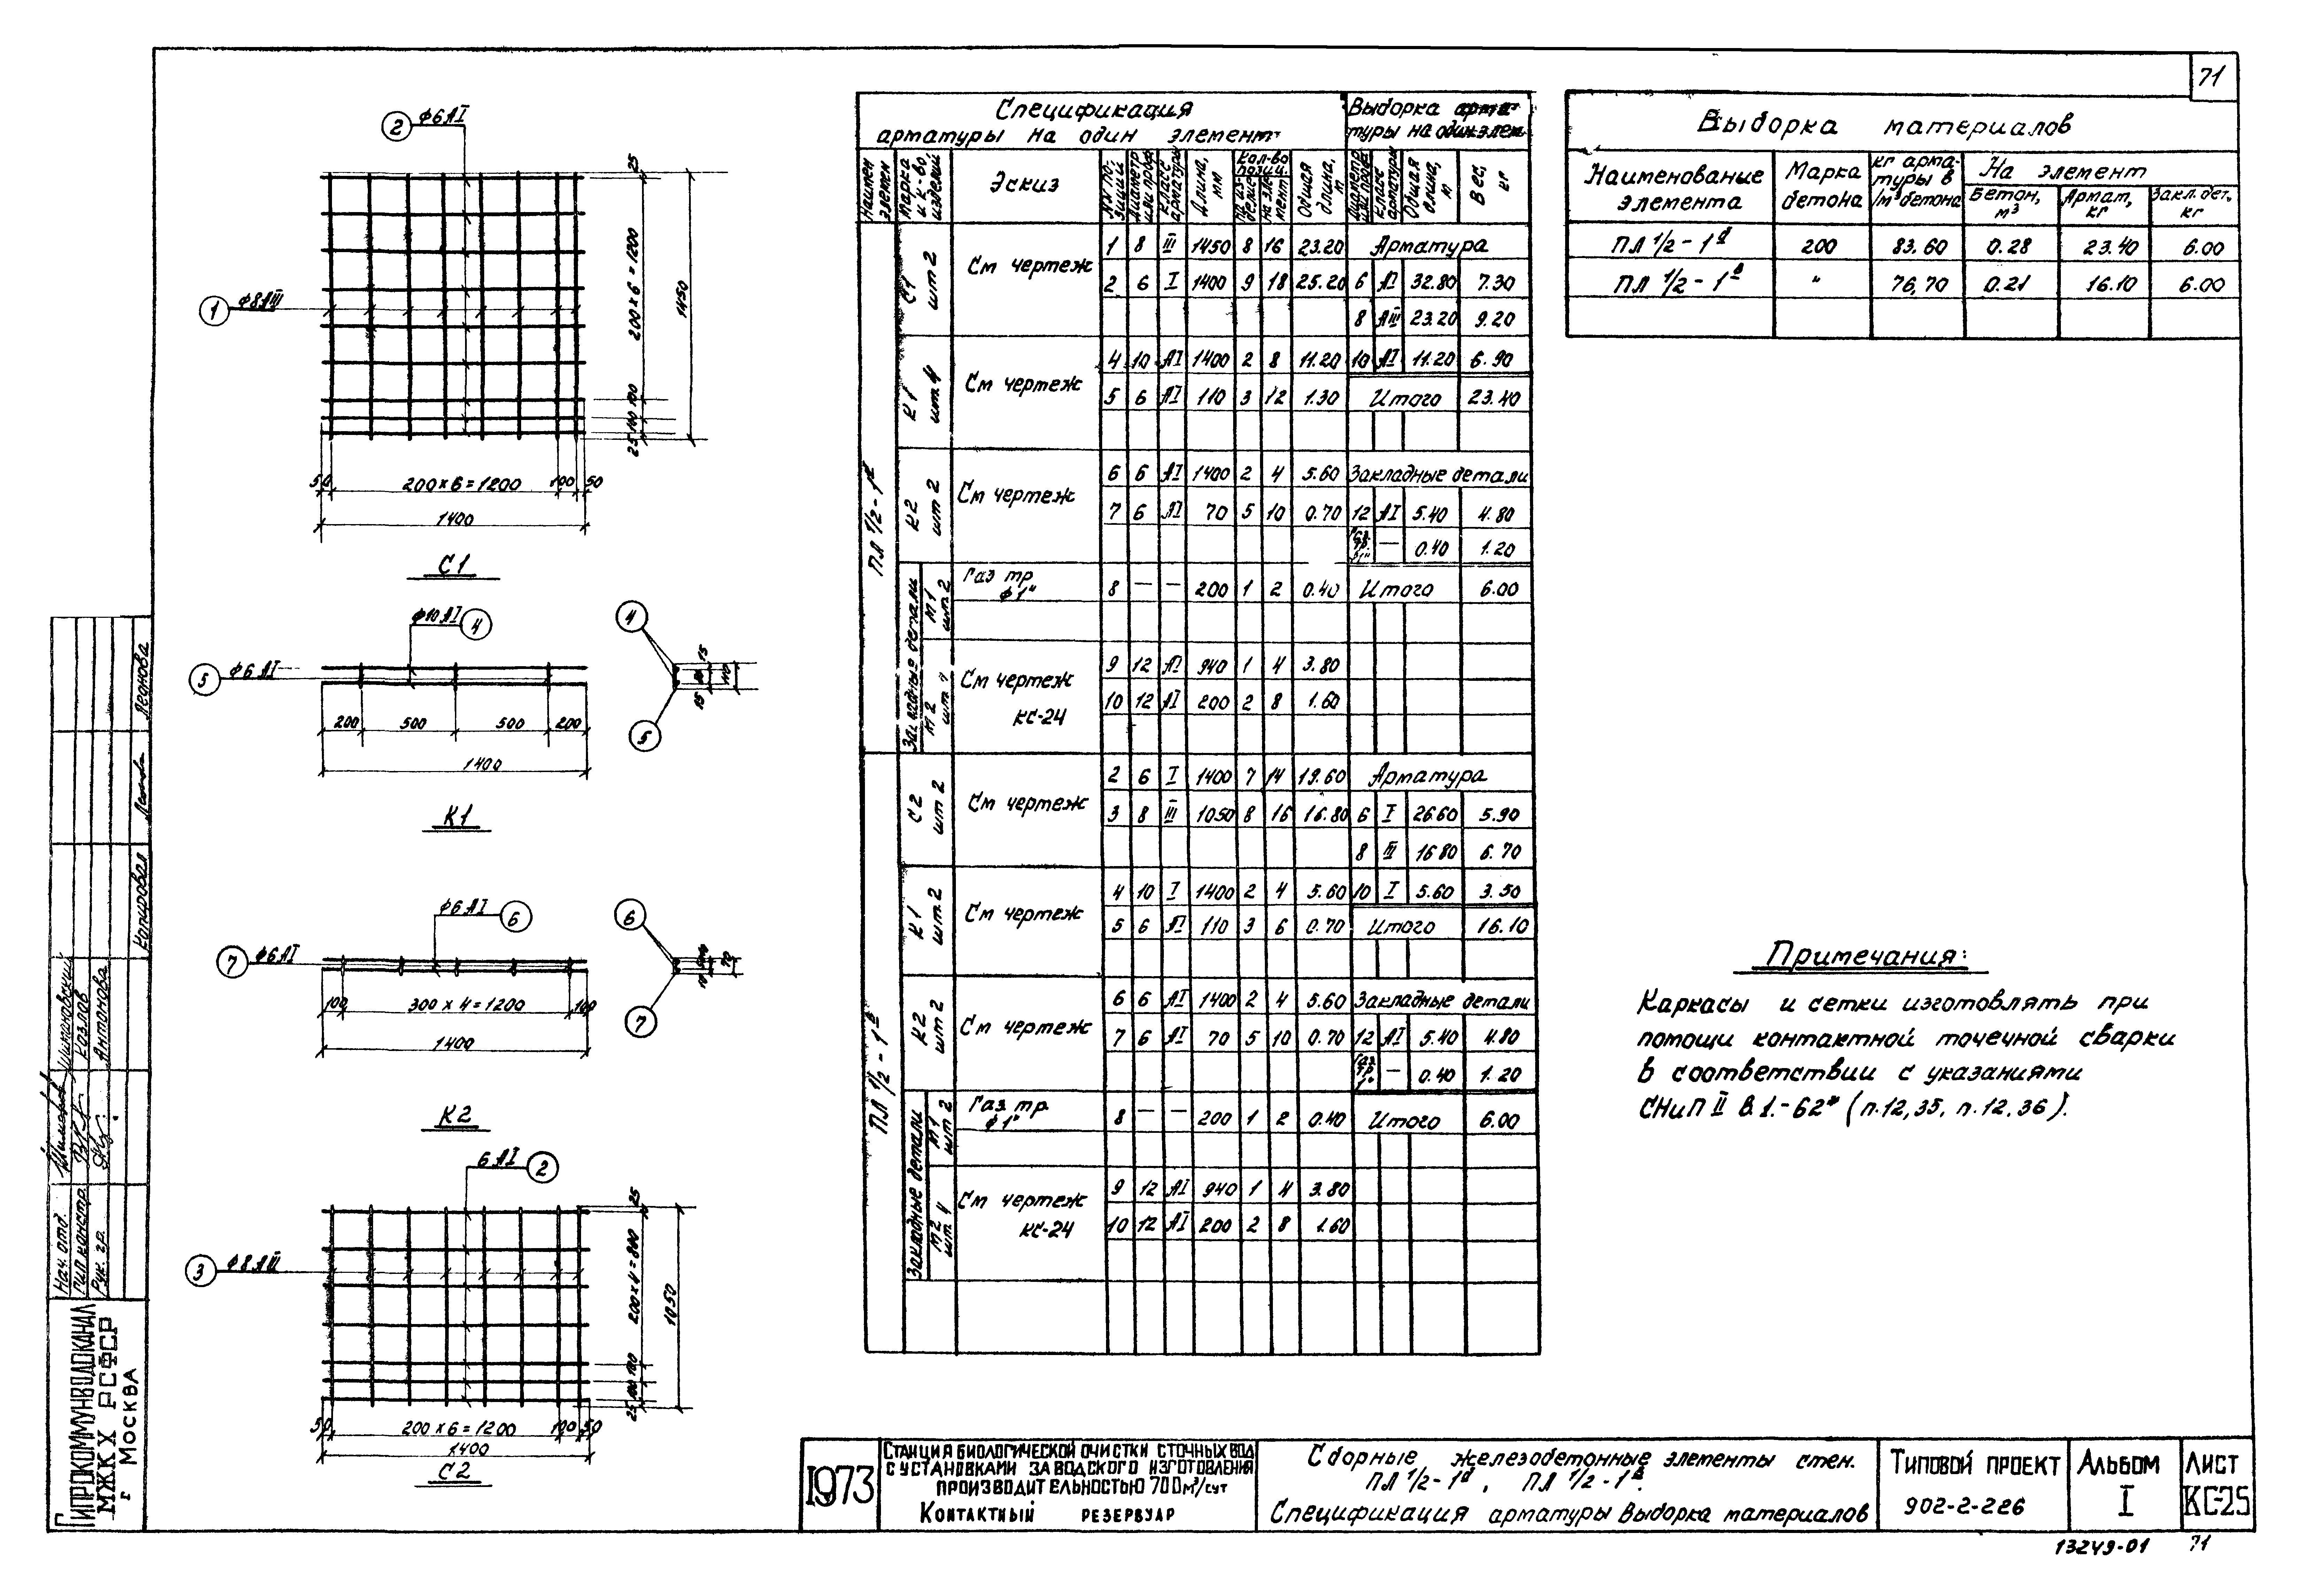 71
2 ϕ6AI
1 ϕ8AIII
25
200 x 6 = 1200
1450
100
100
25
50 200 x 6 = 1200 100 50
1400
С1
ϕ10AI 4
5 ϕ6AI
200 500 500 200
1400
К1
4
15
15
5
ϕ6AI 6
7 ϕ6AI
100 300 x 4 = 1200 100
1400
К2
6
70
7
6AI 2
3 ϕ8AIII
25
200 x 4 = 800
1050
100
100
25
50 200 x 6 = 1200 100 50
1400
С2
Спецификация
арматуры на один элемент
Выборка арма-
туры на один элем.
Наимен. элемен
Марка и к-во изделий
Эскиз
№№ по-зиций
Диаметр или проф.
Класс арматуры
Длина, мм
Кол-во позиц.
На из-делие
На эле-мент
Общая длина, м
Диаметр или проф.
Класс арматуры
Общая длина, м
Вес, кг
ПЛ 1/2 - 1д
С1 шт 2 См чертеж
1 8 III 1450 8 16 23.20 Арматура
2 6 I 1400 9 18 25.20 6 AI 32.80 7.30
8 AIII 23.20 9.20
К1 шт 4 См чертеж
4 10 AI 1400 2 8 11.20 10 AI 11.20 6.90
5 6 AI 110 3 12 1.30 Итого 23.40
К2 шт 2 См чертеж
6 6 AI 1400 2 4 5.60 Закладные детали
7 6 AI 70 5 10 0.70 12 AI 5.40 4.80
Газ. тр. ϕ1" — 0.40 1.20
Закладные детали
М1 шт. 2 Газ тр ϕ1"
8 — — 200 1 2 0.40 Итого 6.00
М2 шт. 4 См чертеж КС-24
9 12 AI 940 1 4 3.80
10 12 AI 200 2 8 1.60
ПЛ 1/2 - 1в
С2 шт 2 См чертеж
2 6 I 1400 7 14 19.60 Арматура
3 8 III 1050 8 16 16.80 6 I 26.60 5.90
8 III 16.80 6.70
К1 шт. 2 См чертеж
4 10 I 1400 2 4 5.60 10 I 5.60 3.50
5 6 AI 110 3 6 0.70 Итого 16.10
К2 шт 2 См чертеж
6 6 AI 1400 2 4 5.60 Закладные детали
7 6 AI 70 5 10 0.70 12 AI 5.40 4.80
Газ. тр. 1" — 0.40 1.20
Закладные детали
М1 шт 2 Газ тр. ϕ1"
8 — — 200 1 2 0.40 Итого 6.00
М2 шт 4 См чертеж КС-24
9 12 AI 940 1 4 3.80
10 12 AI 200 2 8 1.60
Выборка материалов
Наименование элемента
Марка бетона
кг арма-туры в 1м³ бетона
На элемент
Бетон, м³
Армат, кг
Закл. дет., кг
ПЛ 1/2 - 1д 200 83.60 0.28 23.40 6.00
ПЛ 1/2 - 1в " 76,70 0.21 16.10 6.00
Примечания:
Каркасы и сетки изготовлять при
помощи контактной точечной сварки
в соответствии с указаниями
СНиП II В 1.-62* (п.12,35, п.12,36).
Копировал Леонова
Нач. отд. Шимановский
Гл. констр. Козлов
Рук. гр. Антонова
Гипрокоммунводоканал
МЖКХ РСФСР
г Москва
1973
Станция биологической очистки сточных вод
с установками заводского изготовления
производительностью 700м³/сут
Контактный резервуар
Сборные железобетонные элементы стен.
ПЛ 1/2-1д, ПЛ 1/2-1в.
Спецификация арматуры Выборка материалов
Типовой проект
902-2-226
Альбом
I
Лист
КС-25
13249-01 71